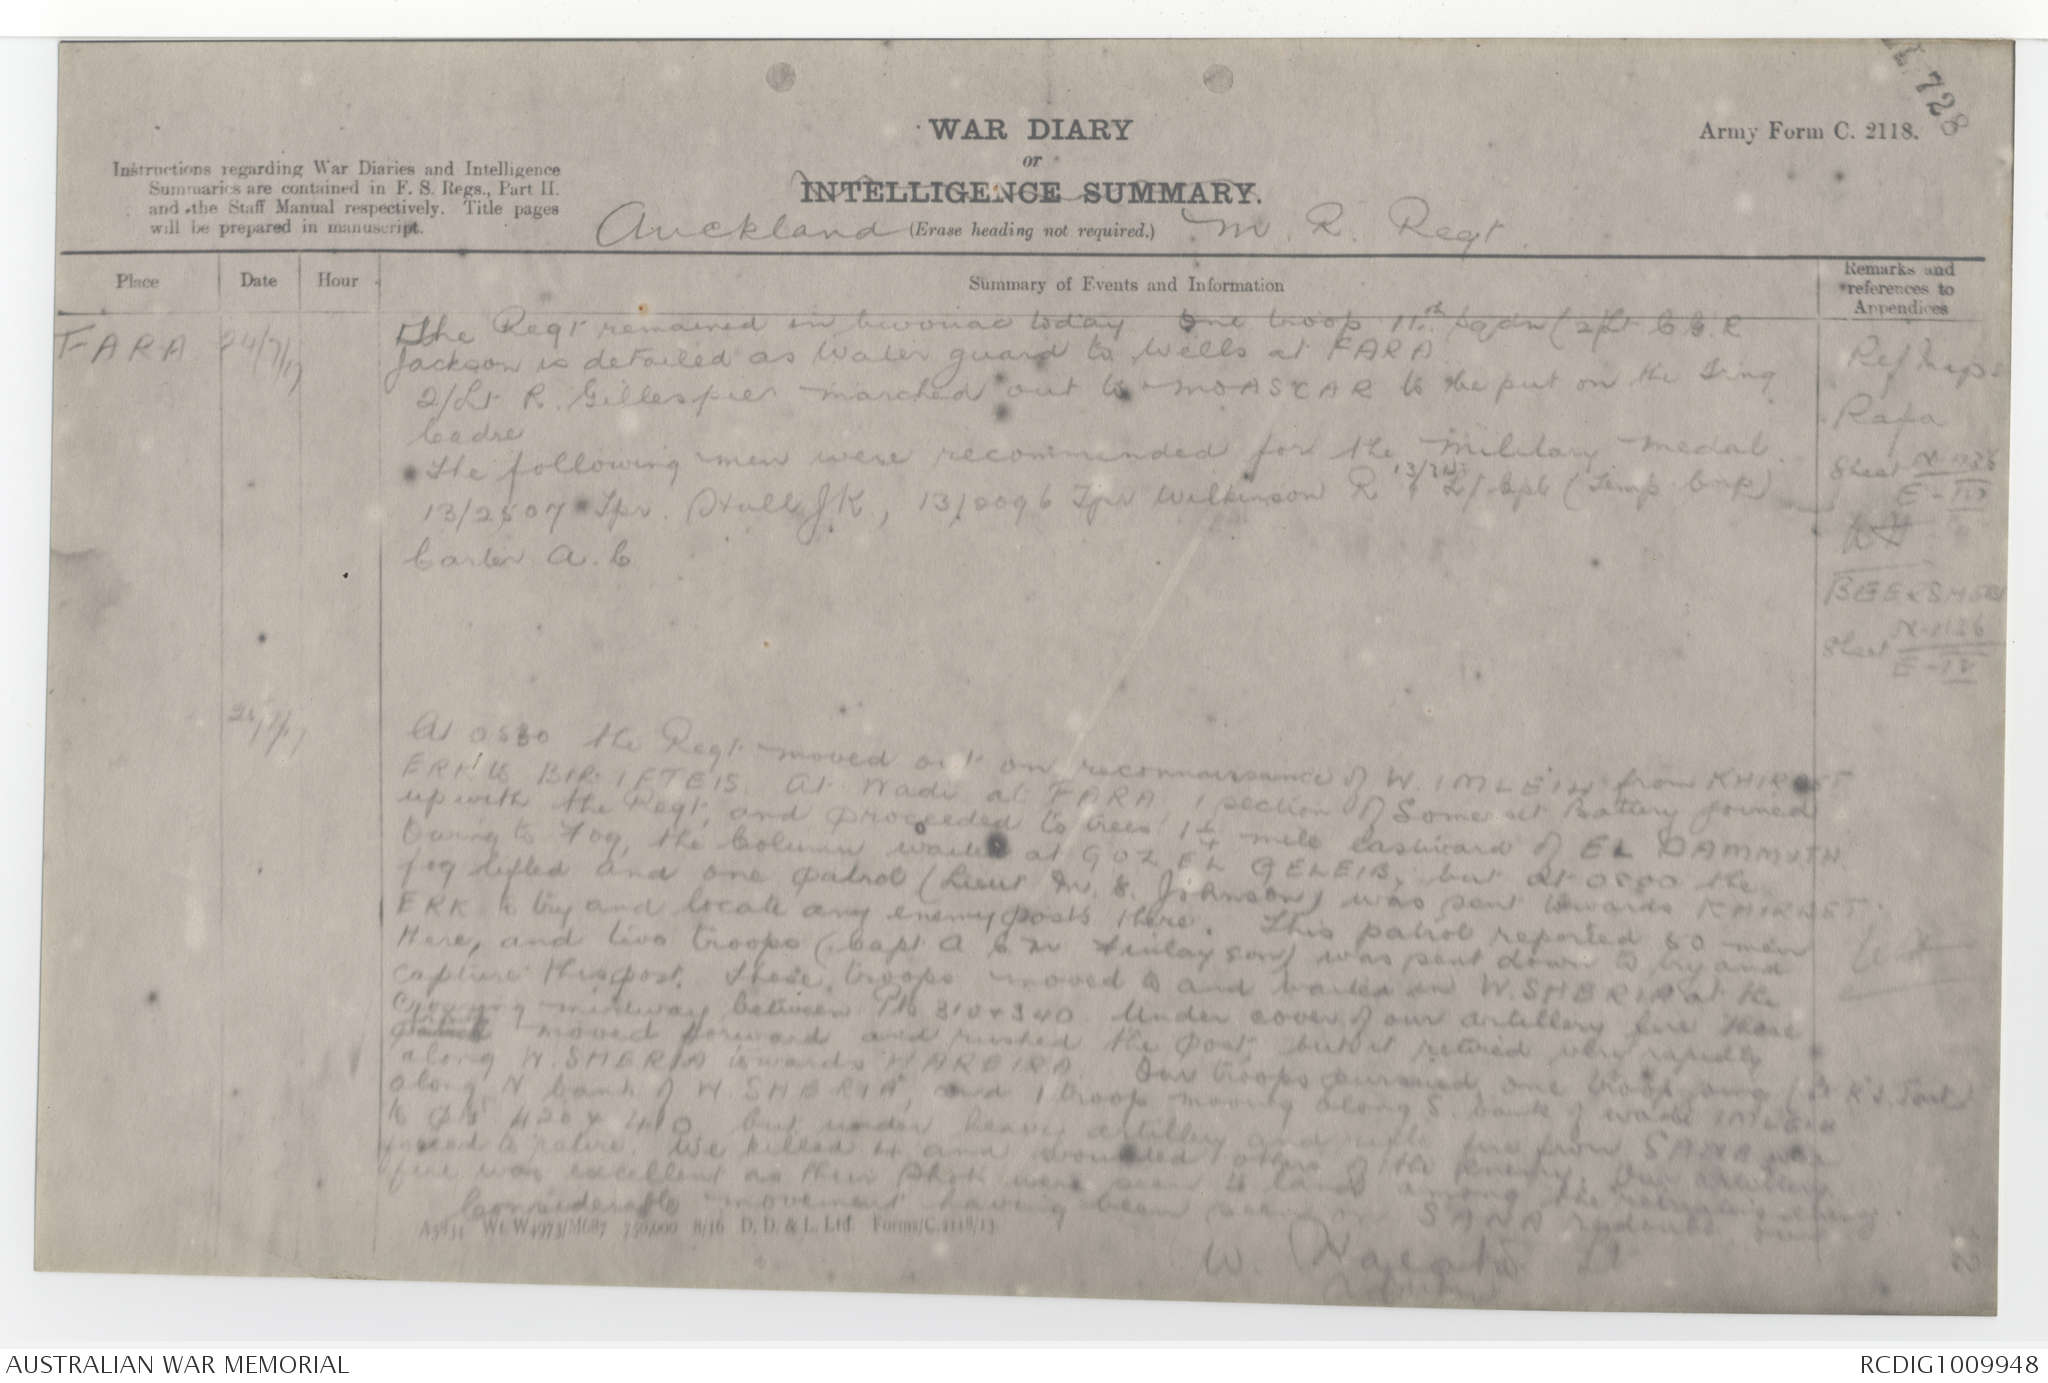 728
WAR DIARY
or
INTELLIGENCE SUMMARY.
(Erase heading not required.)
Army Form C. 2118.
Instructions regarding War Diaries and Intelligence
Summaries are contained in F. S. Regs., Part II.
and the Staff Manual respectively. Title pages
will be prepared in manuscript.
Auckland M. R. Regt.
Place
Date
Hour
Summary of Events and Information
Remarks and
references to
Appendices
FARA
24/7/17
The Regt remained in bivouac today One troop 11th Sqdn (2/Lt
Jackson is detailed as Water guard to Wells at FARA
2/Lt R. Gillespie marched out to MOASCAR to be put on the Trng
Cadre
The following men were recommended for the Military Medal.
13/2507 Tpr. Hull J K, Tpr Wilkinson R L/Cpl (Temp Corp)
Carter A. C
Ref Maps
Rafa
Sheet
BEERSHEBA
Sheet
At 0530 the Regt moved out on reconnaissance of W. IMLEIH from KHIRBET
ERK to BIR IFTEIS. At Wadi at FARA 1 section of Somerset Battery joined
up with the Regt, and proceeded to trees 1¼ mile Eastward of EL DAMMUTH.
Owing to Fog, the Column waited at GOZ EL GELEIB, but at 0800 the
fog lifted and one patrol (Lieut M. S. Johnson) was sent towards KHIRBET
ERK to try and locate any enemy posts there. This patrol reported 50 men
Here, and two troops (Capt A C M Finlayson) was sent down to try and
capture this post. These troops moved to and waited in W. SHERIA at the
crossing midway between Pts 310 & 340. Under cover of our artillery fire these
moved forward and rushed the post, but it retired very rapidly
along W. SHERIA towards HAREIRA. Our troops pursued, one troop going
along N bank of W. SHERIA, and 1 troop moving along S. bank of Wadi IMLEIH
to Pts 420 & 410 but under heavy artillery and rifle fire from SANA was
forced to retire. We killed 4 and wounded others of the Enemy. Our artillery
fire was excellent as their shots were seen to land among the retiring enemy.
Considerable movement having been seen in SANA redoubt
A5834 Wt. W4973/M687 750,000 8/16 D. D. & L. Ltd. Forms/C.2118/13
W. Lt
AUSTRALIAN WAR MEMORIAL
RCDIG1009948